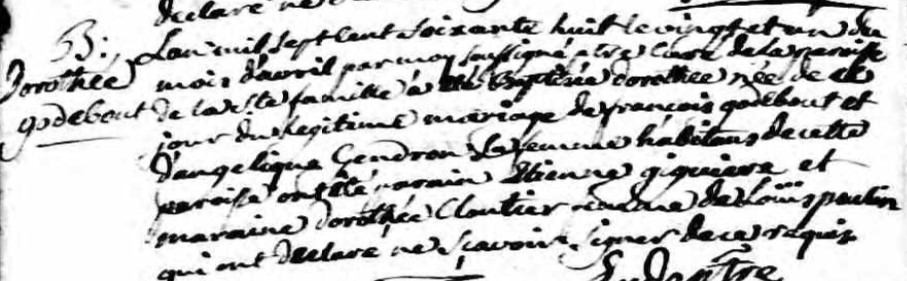 declaré ne
B: Lan mil sept cent soixante huit le vingt et un du
Dorothee mois davril par moy soussigné ptre Curé de la paroisse
godebout de la Ste famille a été Baptisée dorothee née de ce
jour du legitime mariage de francois godebout et
dangelique Gendron sa femme habitans de cette
paroisse ont été parain Etienne giguiere et
maraine dorothée Cloutier femme de Louis poulin
qui ont declaré ne sçavoir signer de ce requis